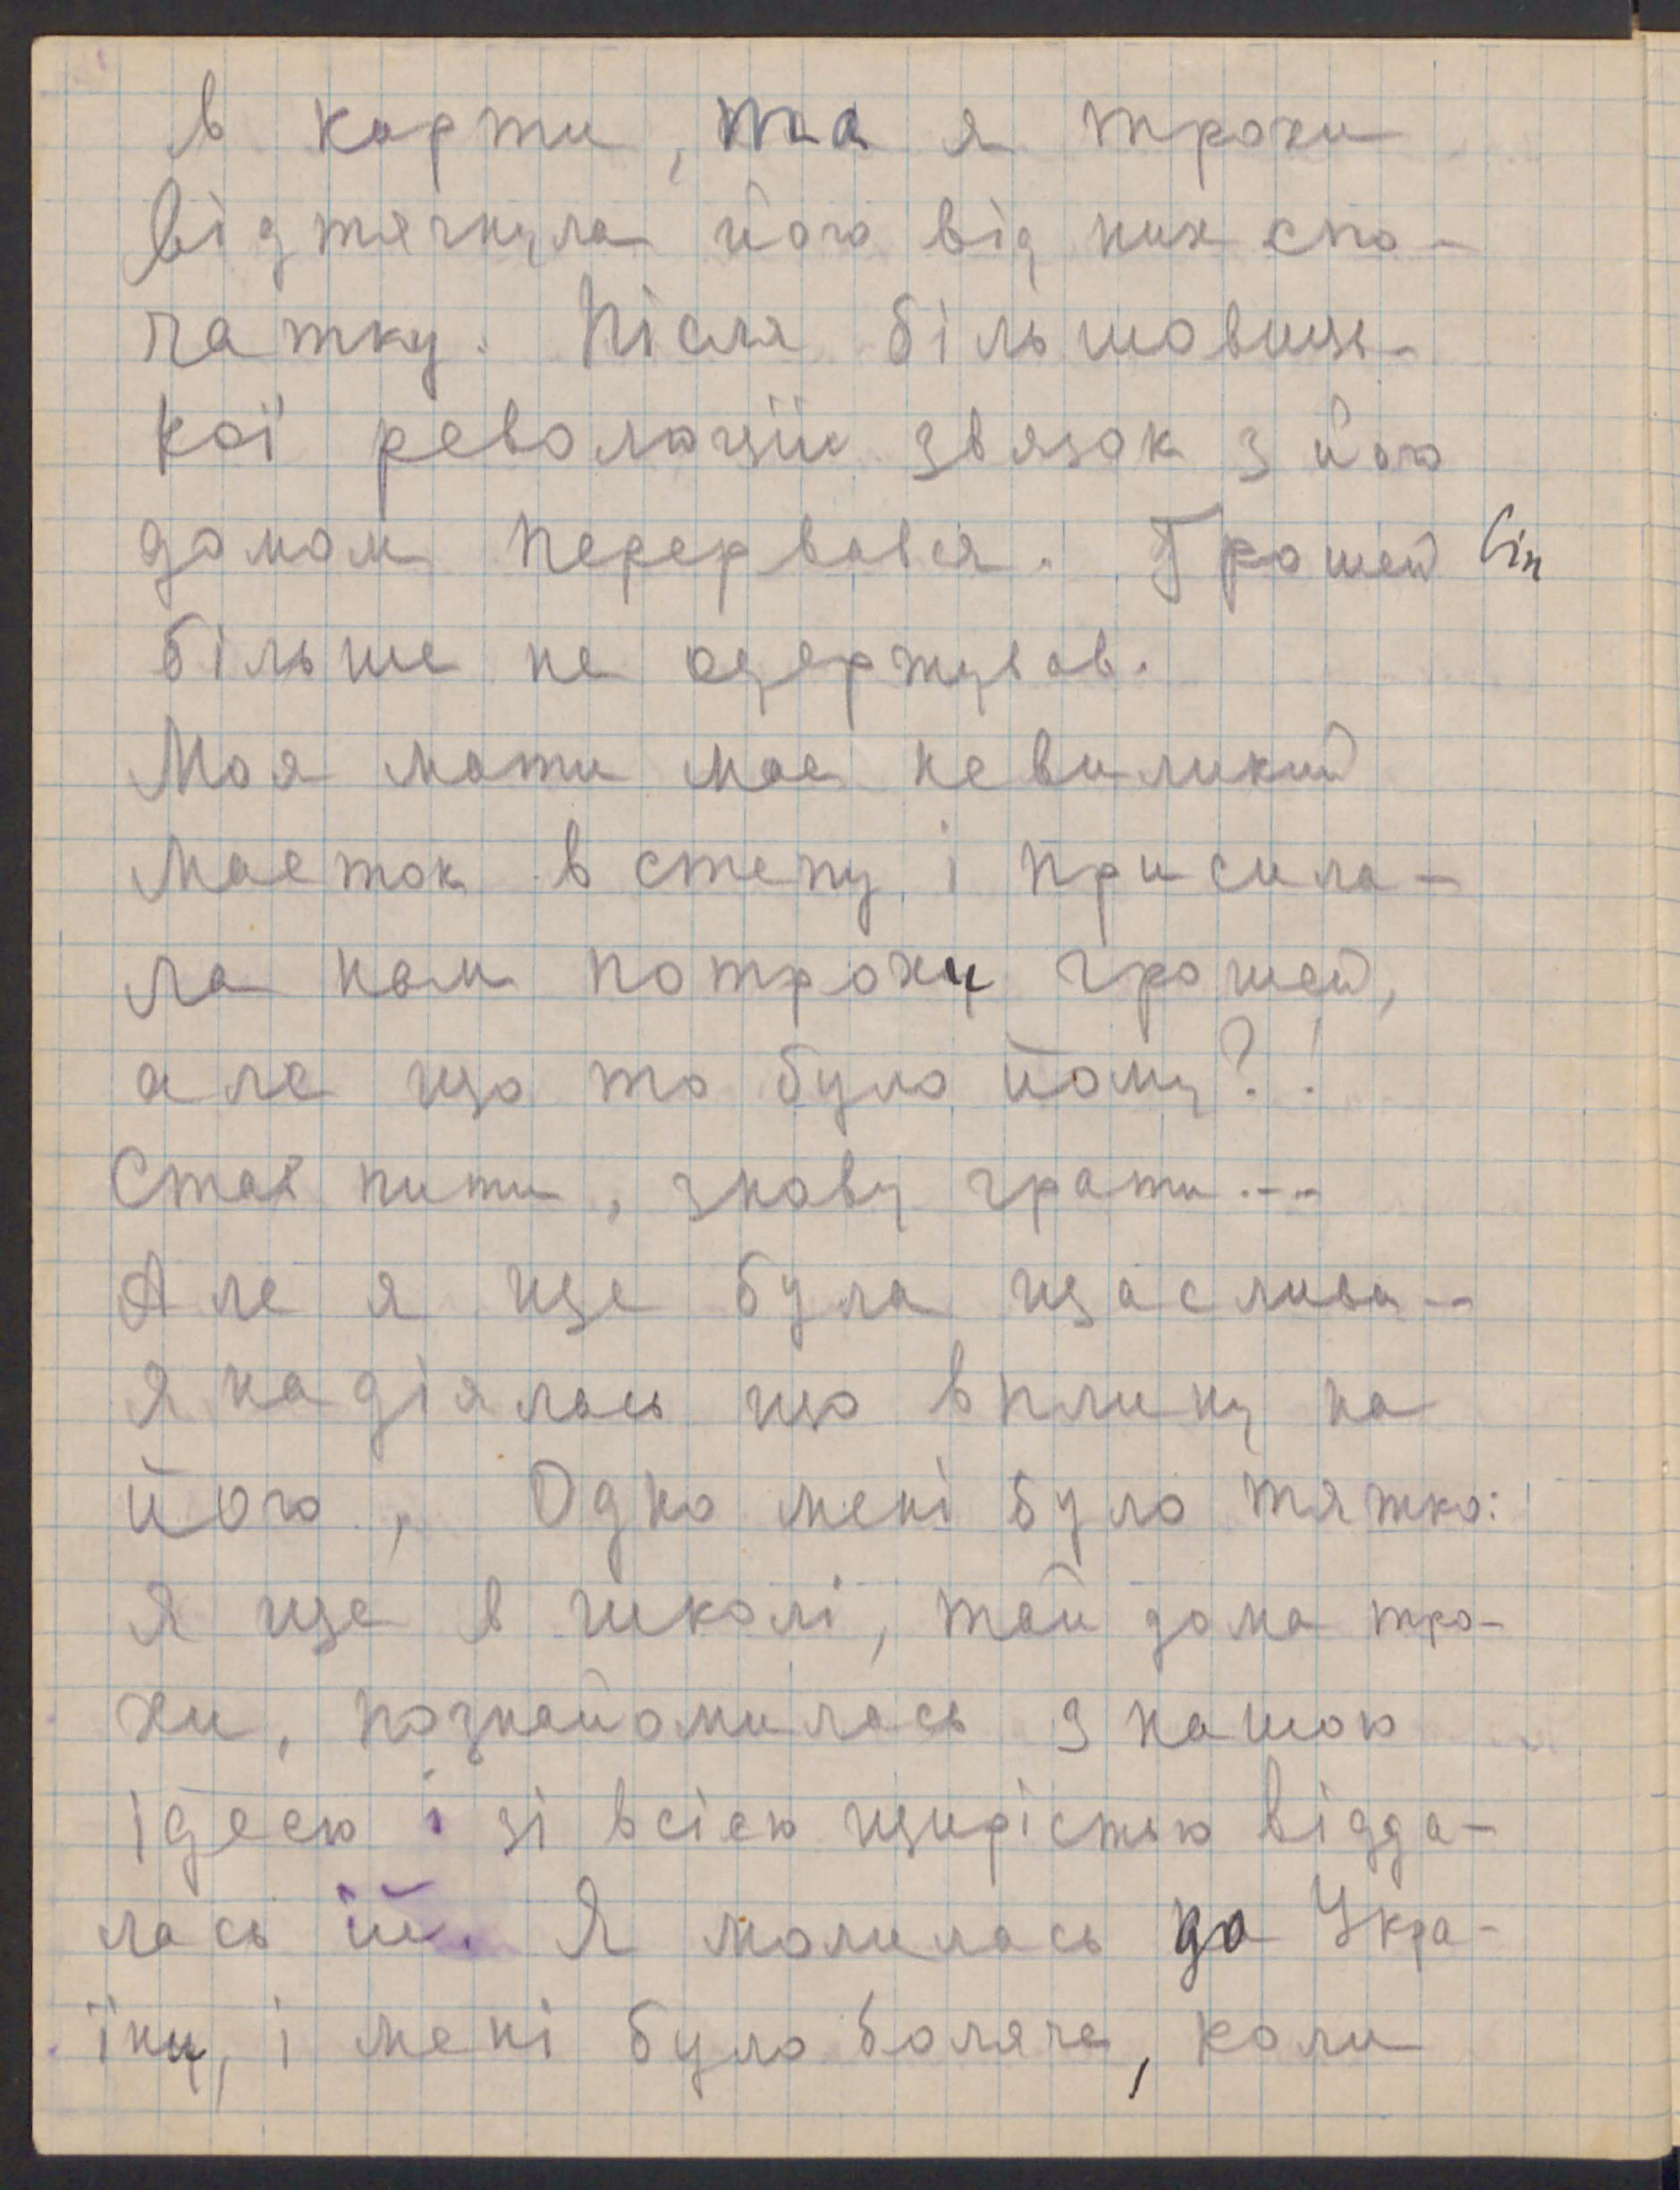 в карти, та я трохи
відтягнула його від них спо-
чатку. Після більшовиць-
кої революціїи звязок з його
домом перервався. Грошей він
більше не одержував.
Моя мати має невиликий
маеток в степу і присила-
ла нам потроху грошей,
але що то було йому?!
Став пити, знову грати...
Але я ще була щаслива..
я надіялась що вплину на
його, Одно мені було тяжко:
я ще в школі, тай дома тро-
хи, познайомилась з нашою
ідеею і зі всією щирістью відда-
лась їй. Я молилась до Укра-
їни, і мені було боляче, коли